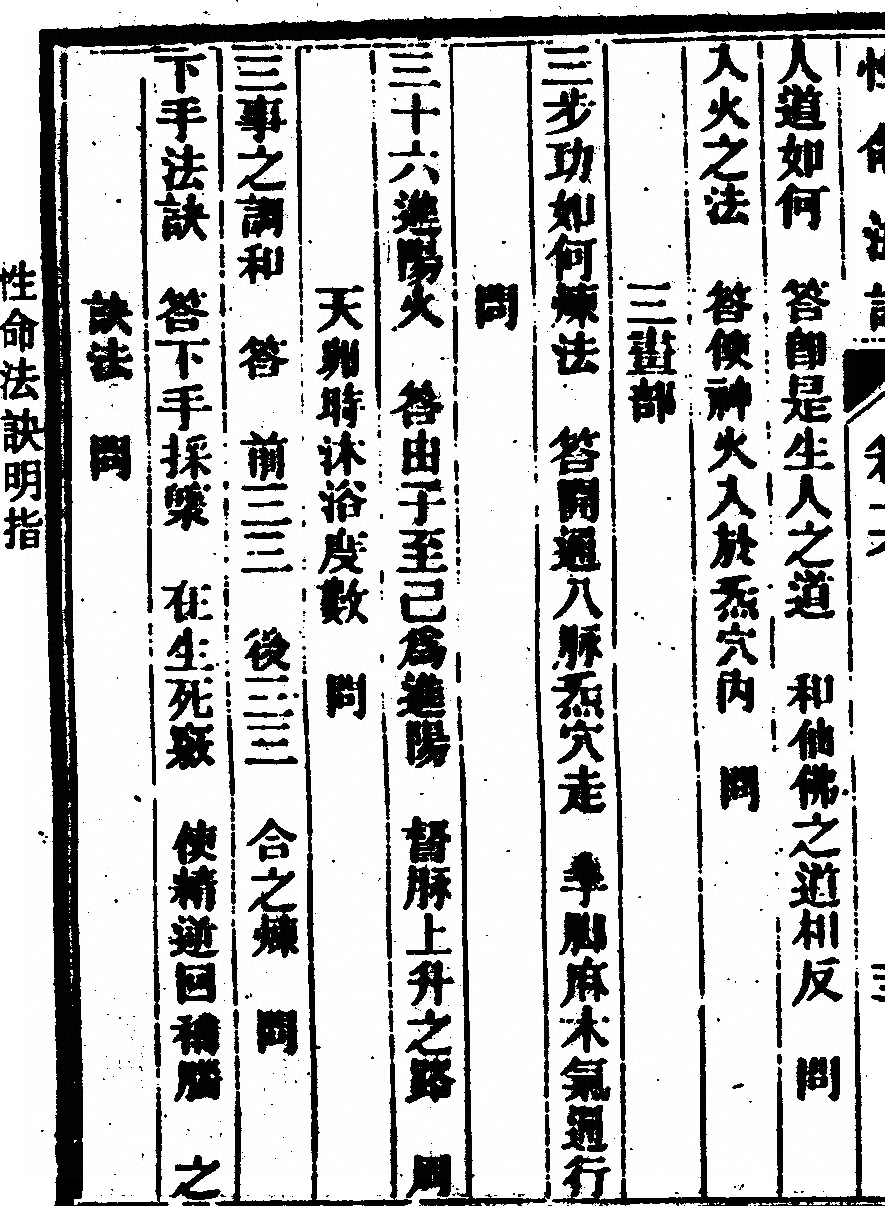 性命法訣
卷二
三
人道如何　答卽是生人之道　和仙佛之道相反　問
入火之法　答使神火入於炁穴內　問
三畫部
三步功如何煉法　答開通八脉炁穴走　拳脚麻木氣通行
問
三十六進陽火　答由子至己爲進陽　督脉上升之路　問
天卯時沐浴度數　問
三事之調和　答　前三三　後三三　合之煉　問
下手法訣　答下手採藥　在生死竅　使精逆回補腦　之
訣法　問
性命法訣明指